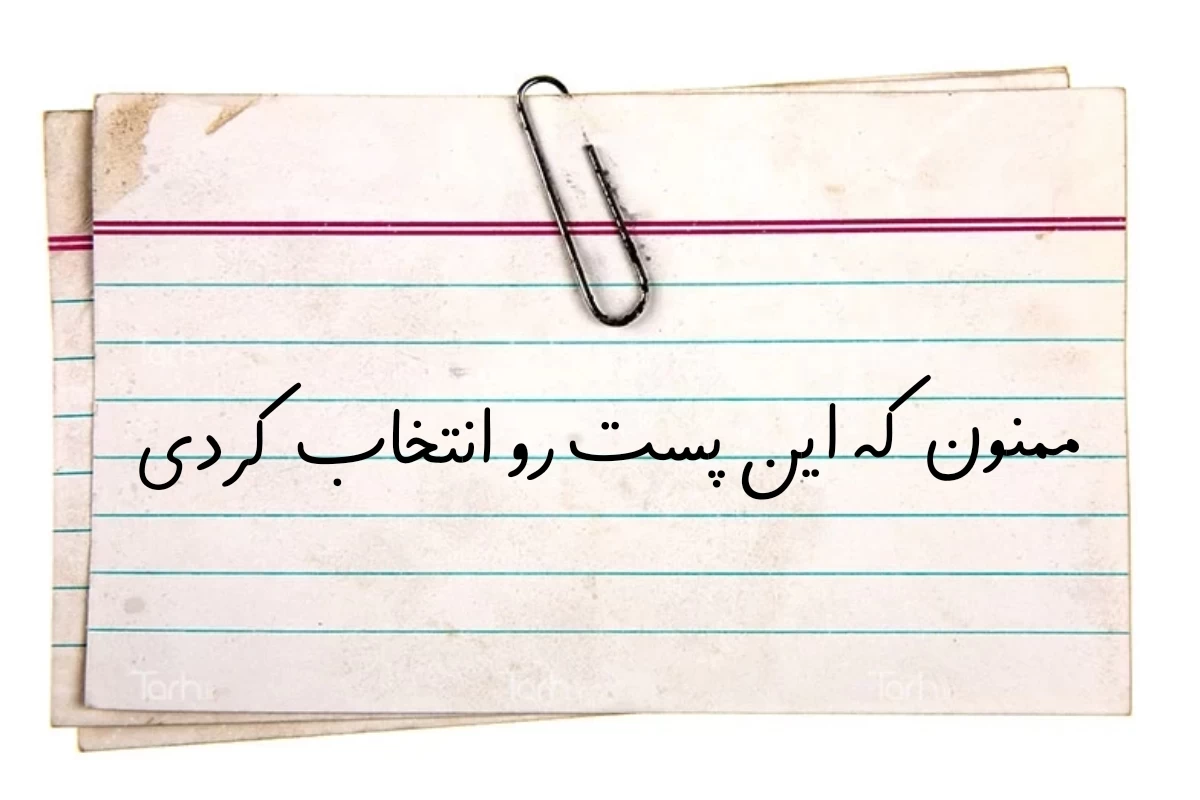 ممنون که این پست رو انتخاب کردی
Tarh
Tarh
Tarh